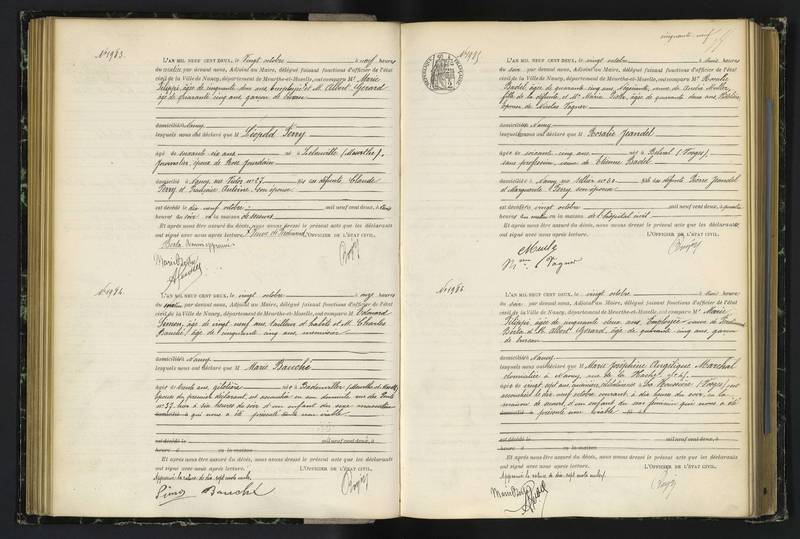 N° 1983.
L'AN MIL NEUF CENT DEUX, le Vingt octobre à neuf heures
du matin par devant nous, Adjoint au Maire, délégué faisant fonctions d'officier de l'état
civil de la Ville de Nancy, département de Meurthe-et-Moselle, ont comparu M Marie
Filippi, âgée de cinquante deux ans Employée et M. Albert Gerard
âgé de quarante cinq ans, garçon de bureau
domiciliés à Nancy
lesquels nous ont déclaré que M Léopold Ferry
âgé de soixante six ans né à (Meurthe).
journalier, époux de Rose Jourdain
domicilié à Nancy, rue n° 57 fils en défunts Claude
Ferry et Antoine, son épouse
est décédé le dix neuf octobre mil neuf cent deux, à
heures du soir en la maison de secours
Et après nous être assuré du décès, nous avons dressé le présent acte que les déclarants
ont signé avec nous après lecture. L'OFFICIER DE L'ÉTAT CIVIL,
N° 1984.
L'AN MIL NEUF CENT DEUX, le vingt octobre à onze heures
du matin par devant nous, Adjoint au Maire, délégué faisant fonctions d'officier de l'état
civil de la Ville de Nancy, département de Meurthe-et-Moselle, ont comparu M Edouard
âgé de vingt neuf ans tailleur d'habits et M. Charles
Bauché, âgé de cinquante cinq ans, menuisier
domiciliés à Nancy
lesquels nous ont déclaré que M Marie Bauché
âgée de trente ans, giletière née à Badonviller (Meurthe et Moselle)
épouse du premier déclarant est accouchée en son domicile rue des Ponts
n° 37, hier à six heures du soir d'un enfant du sexe masculin
qui nous a été présenté sans vie
est décédé le mil neuf cent deux, à
heures d en la maison
Et après nous être assuré du décès, nous avons dressé le présent acte que les déclarants
ont signé avec nous après lecture. L'OFFICIER DE L'ÉTAT CIVIL,
Approuvé la rature de dix sept mots nuls.
Bauché
cinquante neuf
N° 1985
L'AN MIL NEUF CENT DEUX, le vingt octobre à deux heures
du soir par devant nous, Adjoint au Maire, délégué faisant fonctions d'officier de l'état
civil de la Ville de Nancy, département de Meurthe-et-Moselle, ont comparu M
Badel, âgée de quarante cinq ans, Négociante, veuve de André Muller
fille de la défunte et Me Marie âgée de quarante deux ans
épouse de Nicolas Vagner
domiciliés à Nancy
lesquels nous ont déclaré que M Rosalie Jeandel
âgée de soixante cinq ans née à Belval (Vosges)
sans profession, veuve de Etienne Badel
domiciliée à Nancy, rue n° fille en défunts Pierre Jeandel
et Marguerite Ferry son épouse
est décédée vingt octobre mil neuf cent deux, à
heures du matin en la maison de l'hôpital civil
Et après nous être assuré du décès, nous avons dressé le présent acte que les déclarants
ont signé avec nous après lecture. L'OFFICIER DE L'ÉTAT CIVIL,
Vagner
N° 1986.
L'AN MIL NEUF CENT DEUX, le vingt octobre à deux heures
du soir par devant nous, Adjoint au Maire, délégué faisant fonctions d'officier de l'état
civil de la Ville de Nancy, département de Meurthe-et-Moselle, ont comparu M Marie
Filippi, âgée de cinquante deux ans, Employée veuve de Ferdinand
et M. Albert Gerard, âgé de quarante cinq ans garçon
de bureau
domiciliés à Nancy
lesquels nous ont déclaré que M Marie Joséphine Angélique Marchal
domiciliée à Nancy, rue de la n° 45.
âgée de vingt sept ans, née à La Houssière (Vosges) est
accouchée le dix neuf octobre courant à dix heures du soir, en la
maison de secours, d'un enfant du sexe féminin qui nous a été
présenté sans vie
est décédé le mil neuf cent deux, à
heures d en la maison
Et après nous être assuré du décès, nous avons dressé le présent acte que les déclarants
ont signé avec nous après lecture. L'OFFICIER DE L'ÉTAT CIVIL,
Approuvé la rature de dix sept mots nuls.